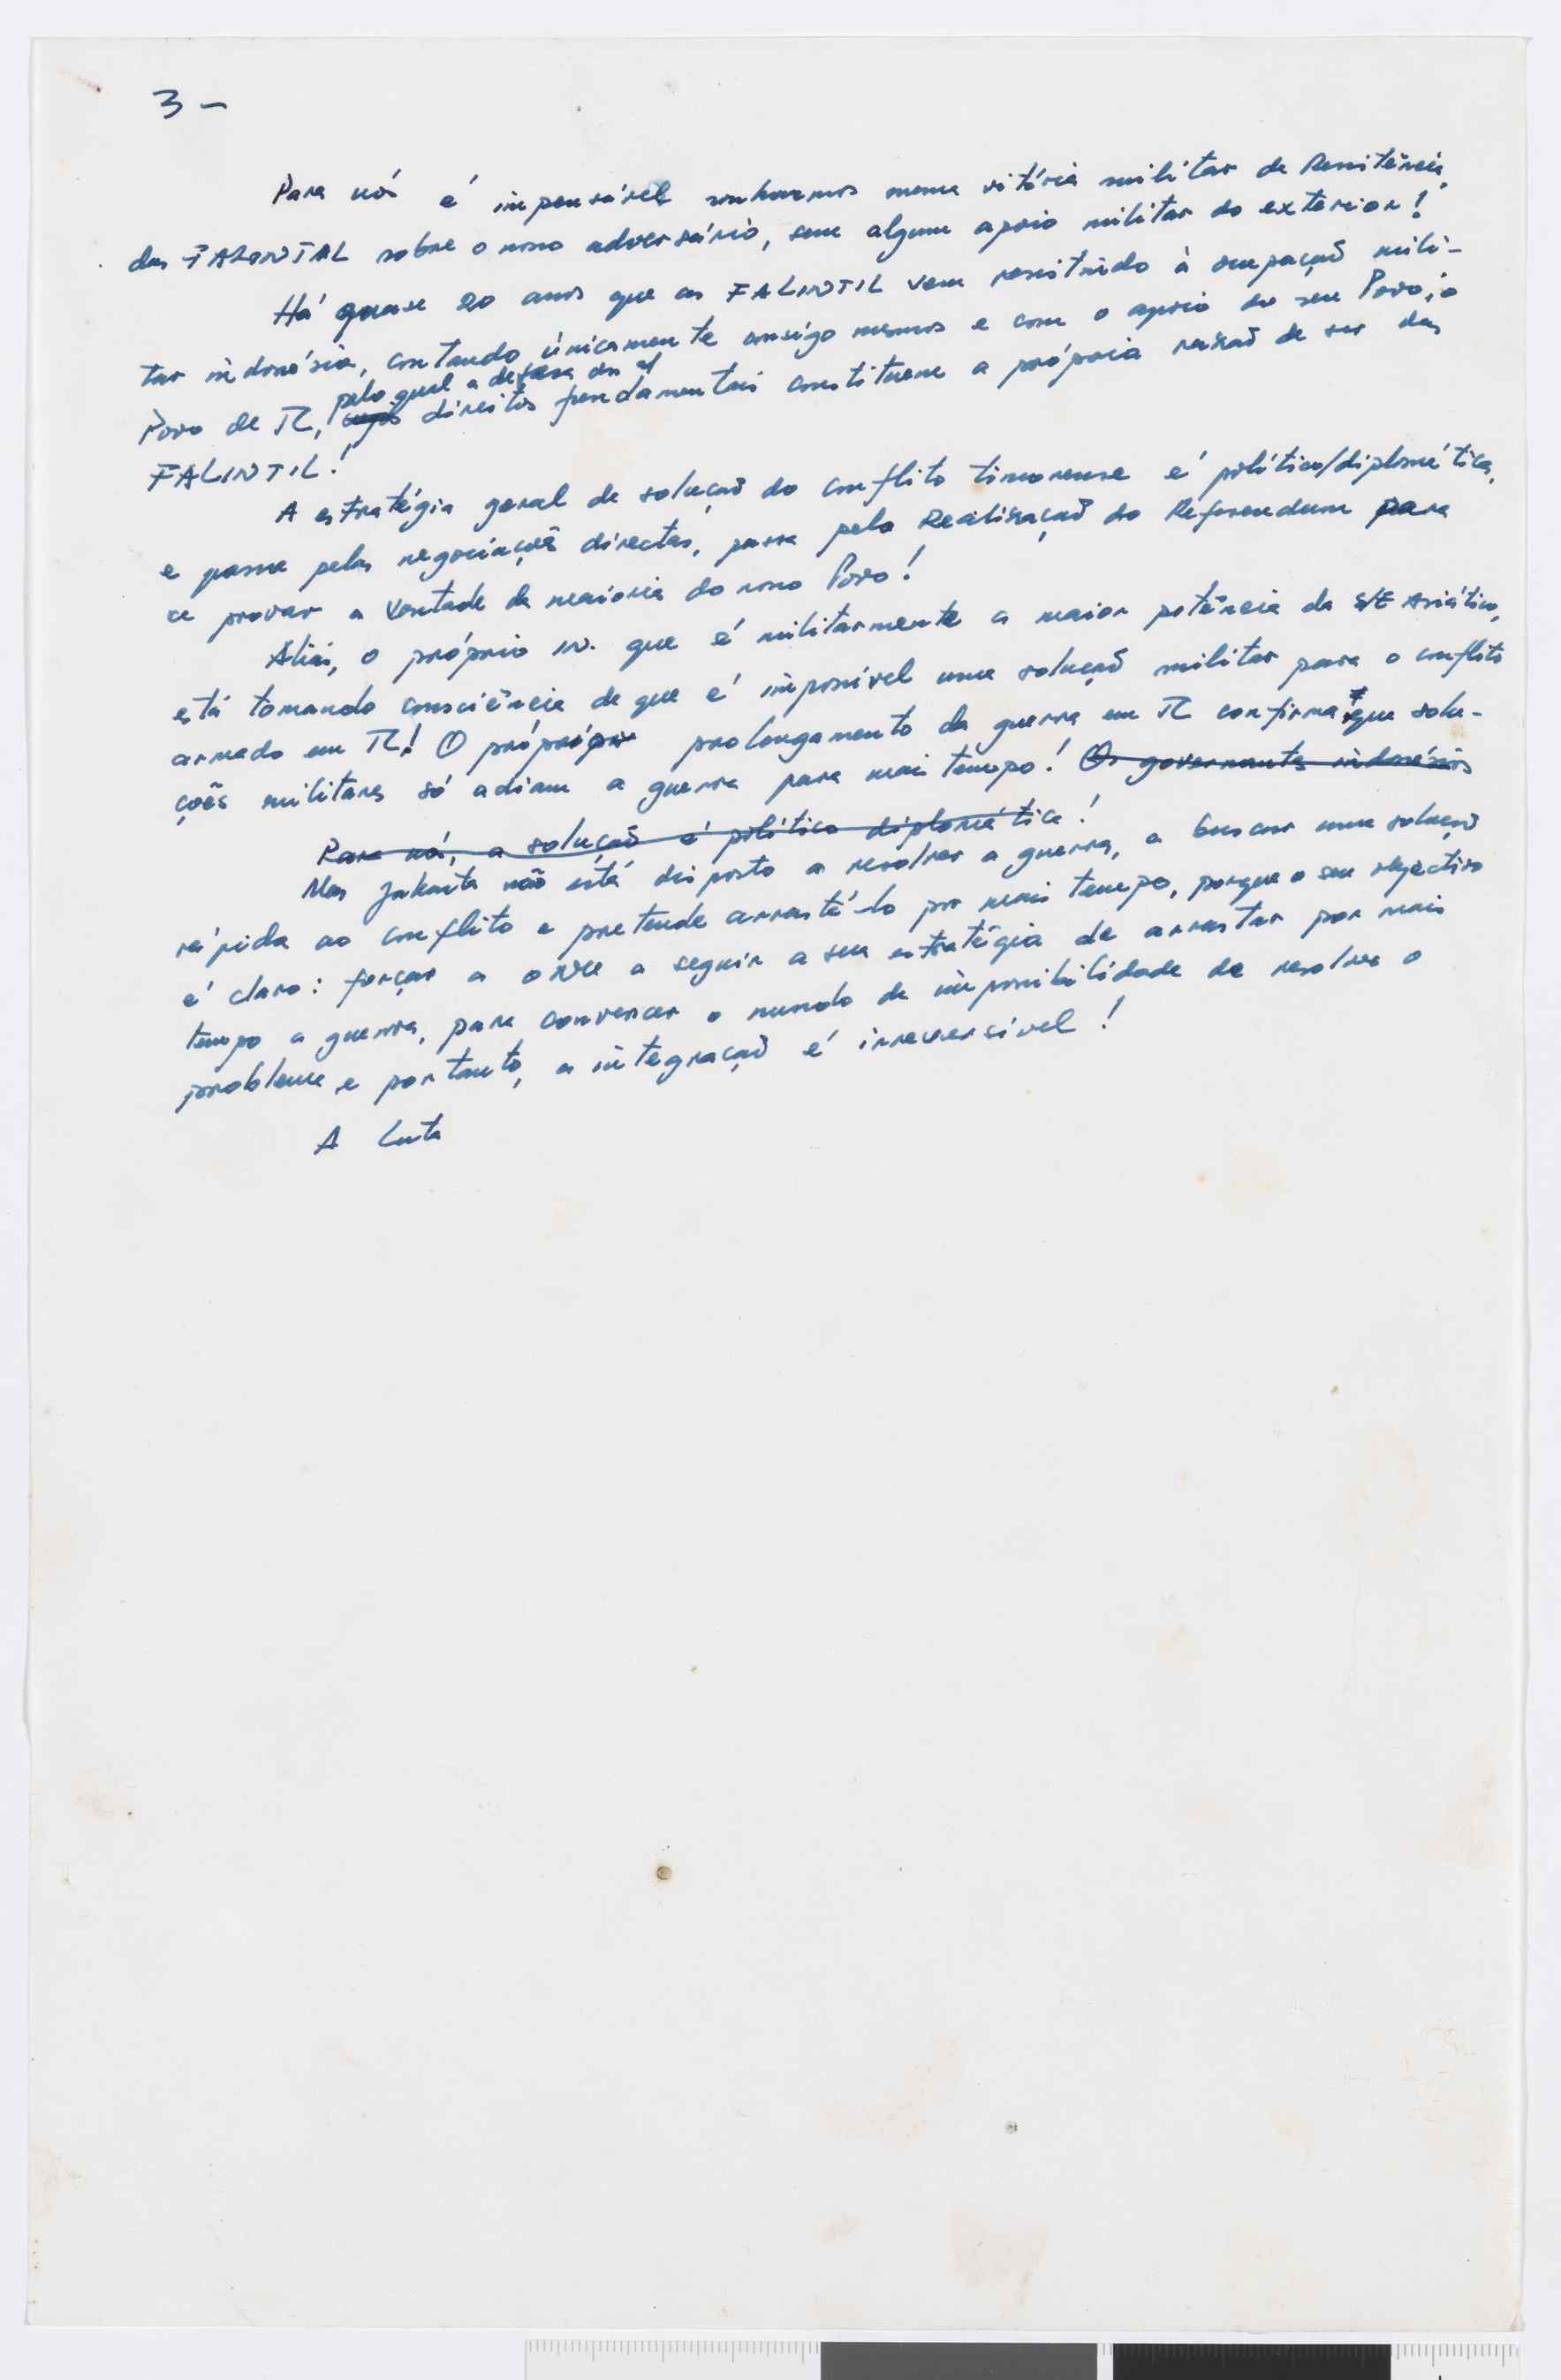 3 -
Para nós é impensável sonharmos numa vitória militar da Resistência,
das FALINTIL sobre o nosso adversário, sem algum apoio militar do exterior!
Há quase 20 anos que as FALINTIL vem resistindo à ocupação mili-
tar indonésia, contando únicamente consigo mesmos e com o apoio do seu Povo, o
pelo qual a defesa dos
Povo de TL, cujos direitos fundamentais constituem a própria razão de ser das
FALINTIL!
A estratégia geral de solução do conflito timorense é político/diplomática,
e passa pelas negociações directas, passa pela Realização do Referendum para
se provar a Vontade da maioria do nosso Povo!
Aliás, o próprio in. que é militarmente a maior potência do S/E Asiático,
está tomando consciência de que é impossível uma solução militar para o conflito
armado em TL! O própriopr prolongamento da guerra em TL confirma que solu-
ções militares só adiam a guerra para mais tempo! Os governantes indonésios
Para nós, a solução é político diplomática!
Mas Jakarta não está disposto a resolver a guerra, a buscar uma solução
rápida ao conflito e pretende arrastá-lo por mais tempo, porque o seu objectivo
é claro: forçar a ONU a seguir a sua estratégia de arrastar por mais
tempo a guerra, para convencer o mundo da impossibilidade de resolver o
problema e portanto, a integração é irreversível!
A Luta